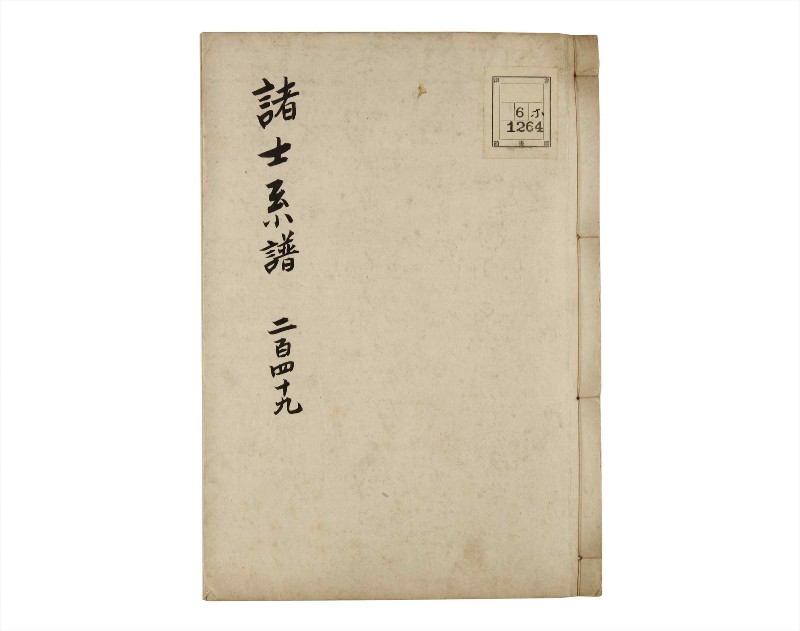 諸士系譜 二百四十九
6 ホ
1264